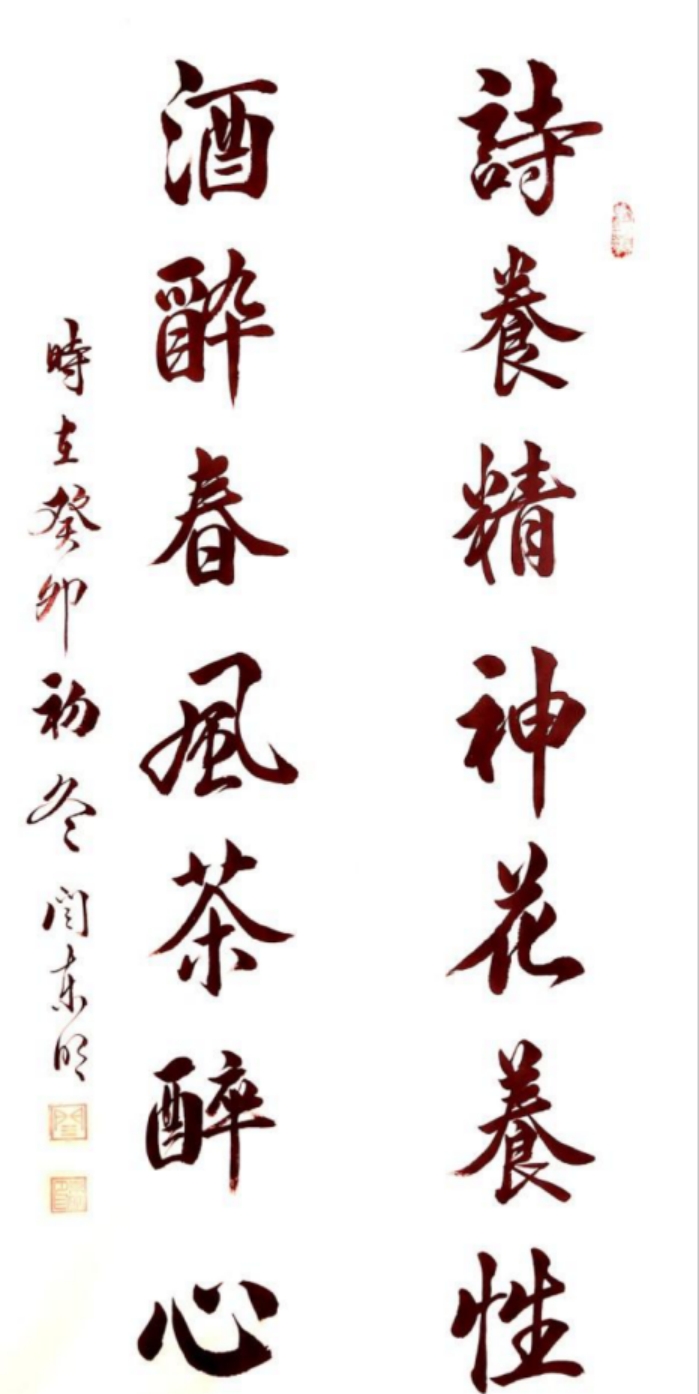 詩養精神花養性
酒醉春風茶醉心
時在癸卯初冬闫东明